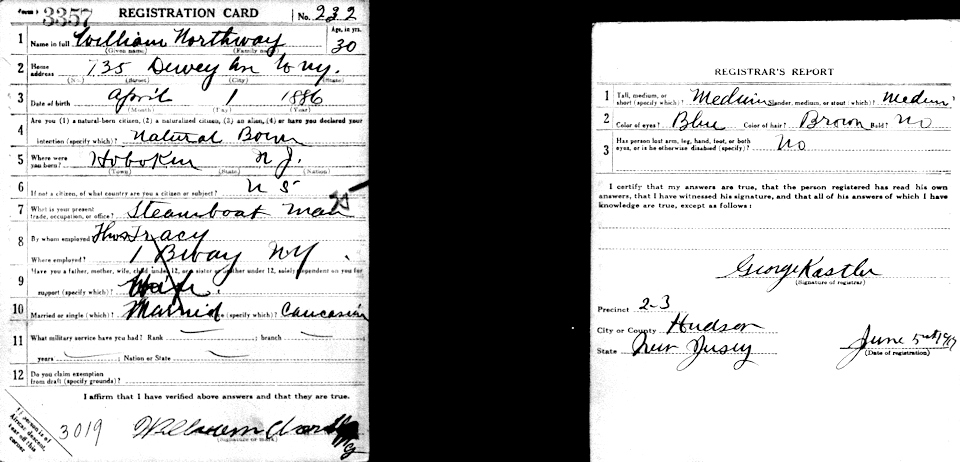 Form 1 3357 REGISTRATION CARD No. 232
1 Name in full William Northway Age, in yrs. 30
(Given name) (Family name)
2 Home address 735 Dewey N.Y.
(No.) (Street) (City) (State)
3 Date of birth April 1 1886
(Month) (Day) (Year)
4 Are you (1) a natural-born citizen, (2) a naturalized citizen, (3) an alien, (4) or have you declared your
intention (specify which)? Natural Born
5 Where were you born? Hoboken N J.
(Town) (State) (Nation)
6 If not a citizen, of what country are you a citizen or subject? U S
7 What is your present trade, occupation, or office? Steamboat Man
8 By whom employed? Thos Tracy
Where employed? 1 Bway NY.
9 Have you a father, mother, wife, child under 12, or a sister or brother under 12, solely dependent on you for
support (specify which)? Wife
10 Married or single (which)? Married Race (specify which)? Caucasian
11 What military service have you had? Rank ; branch
years ; Nation or State
12 Do you claim exemption from draft (specify grounds)?
I affirm that I have verified above answers and that they are true.
3019 William Northway
(Signature or mark)
If person is of African descent, tear off this corner
REGISTRAR'S REPORT
1 Tall, medium, or short (specify which)? Medium Slender, medium, or stout (which)? Medium
2 Color of eyes? Blue Color of hair? Brown Bald? No
3 Has person lost arm, leg, hand, foot, or both eyes, or is he otherwise disabled (specify)? No
I certify that my answers are true, that the person registered has read his own
answers, that I have witnessed his signature, and that all of his answers of which I have
knowledge are true, except as follows:
George Kastler
(Signature of registrar)
Precinct 2-3
City or County Hudson
State New Jersey June 5 1917
(Date of registration)